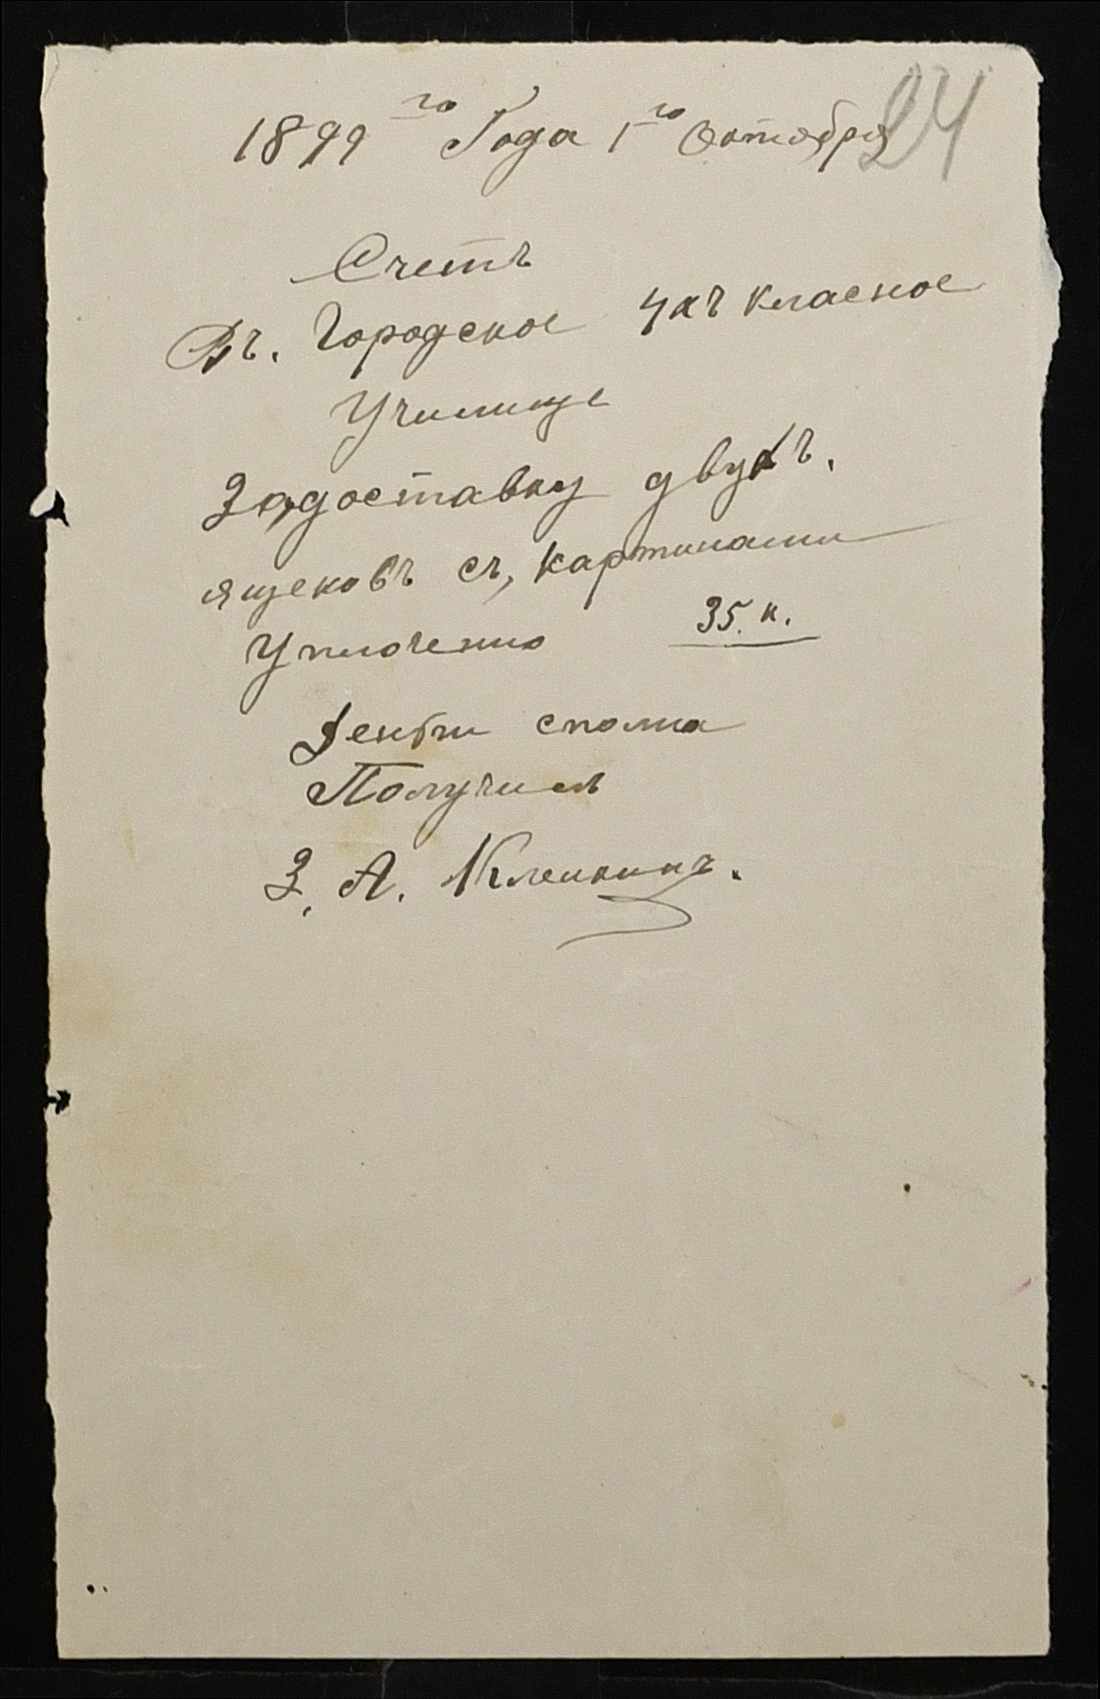 24
1899го Года 1го Октября
Счетъ
Въ. Городское 4хъ класное
Училище
За доставку двухъ.
ящековъ съ, картинами
Уплочено 35. к.
Деньги сполна
Получил
З. А. Клеикинъ.